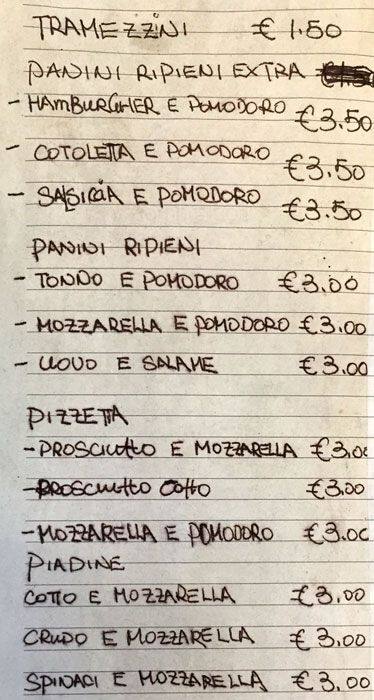 TRAMEZZINI € 1.50
PANINI RIPIENI EXTRA
- HAMBURGHER E POMODORO €3.50
- COTOLETTA E POMODORO €3.50
- SALSICCIA E POMODORO €3.50
PANINI RIPIENI
- TONNO E POMODORO €3.00
- MOZZARELLA E POMODORO €3.00
- UOVO E SALAME €3.00
PIZZETTA
- PROSCIUTTO E MOZZARELLA €3,00
- PROSCIUTTO COTTO €3.00
- MOZZARELLA E POMODORO €3.00
PIADINE
COTTO E MOZZARELLA €3,00
CRUDO E MOZZARELLA €3,00
SPINACI E MOZZARELLA €3,00